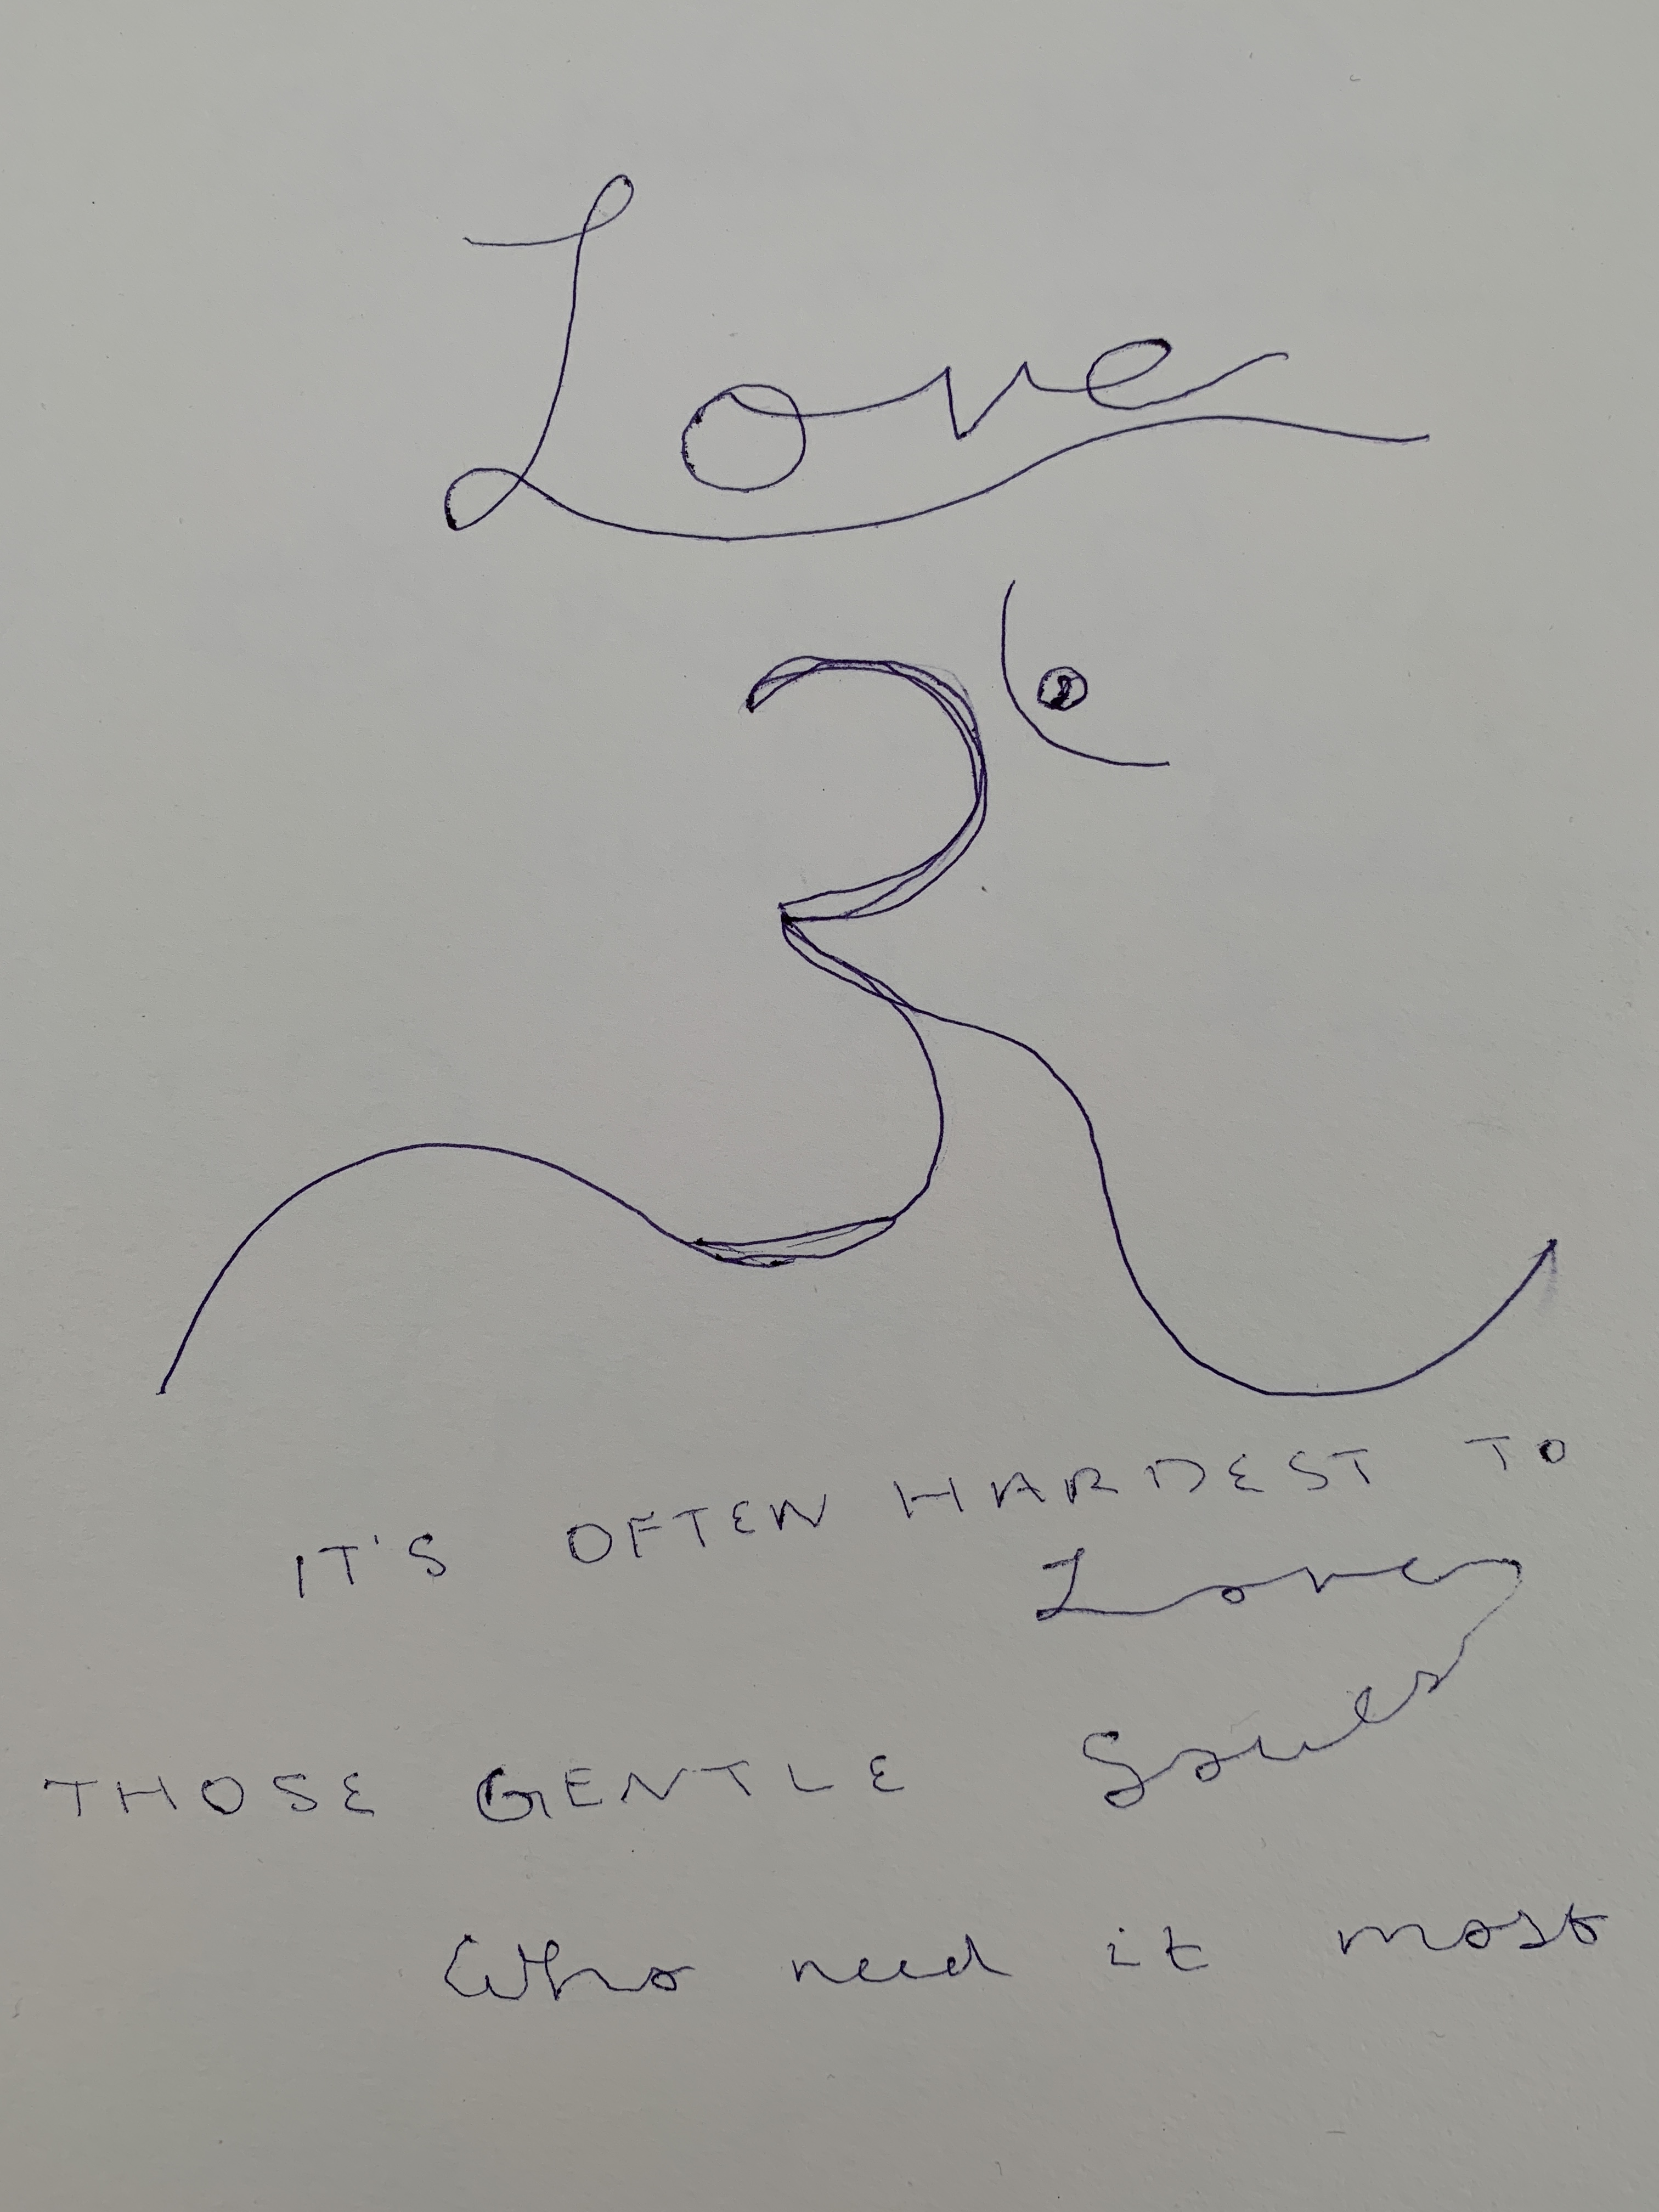 Love
ॐ
IT'S OFTEN HARDEST TO
Love
THOSE GENTLE Souls
Who need it most